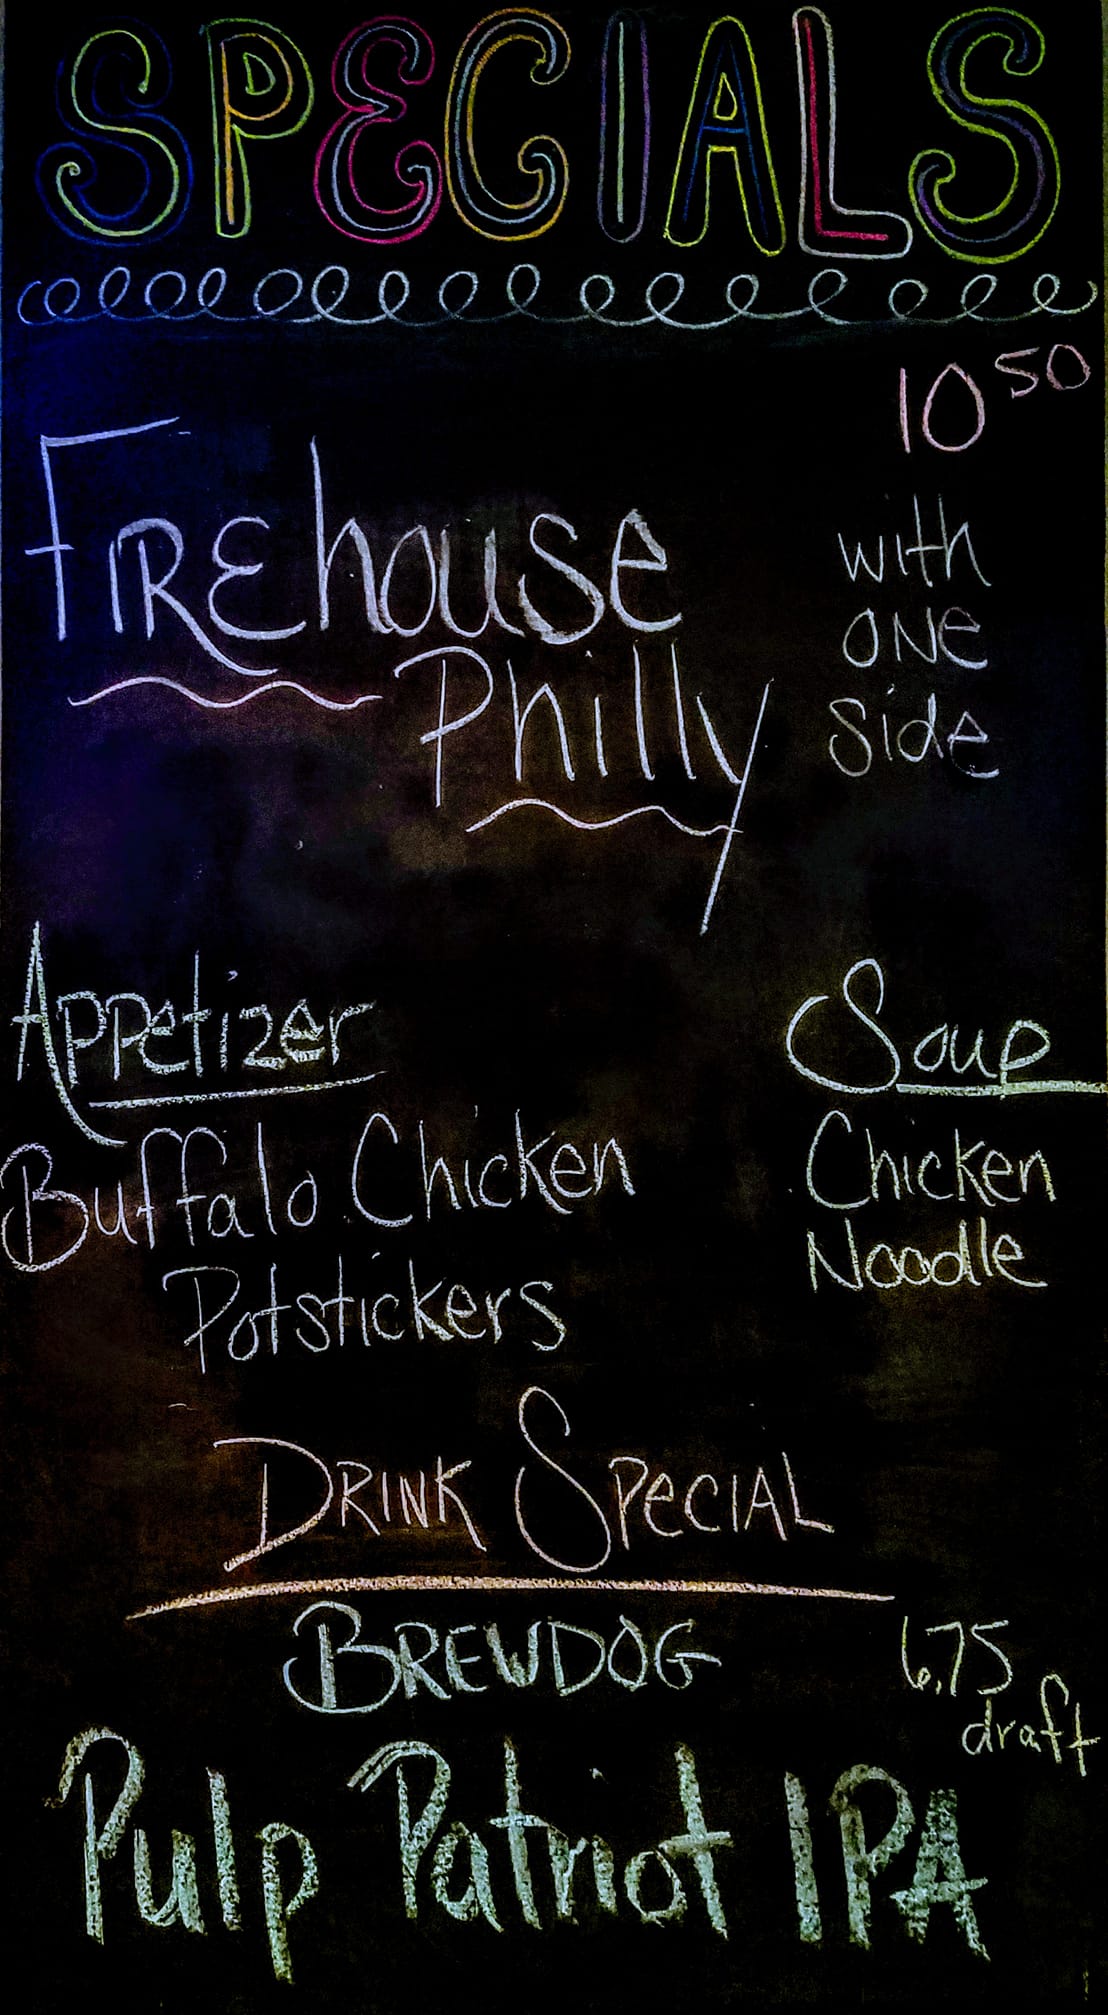 SPECIALS
10 50
FIREhouse
Philly
with
ONe
side
Appetizer
Buffalo Chicken
Potstickers
Soup
Chicken
Noodle
DRINK SPeCIAL
BREWDOG
6.75
draft
Pulp Patriot IPA